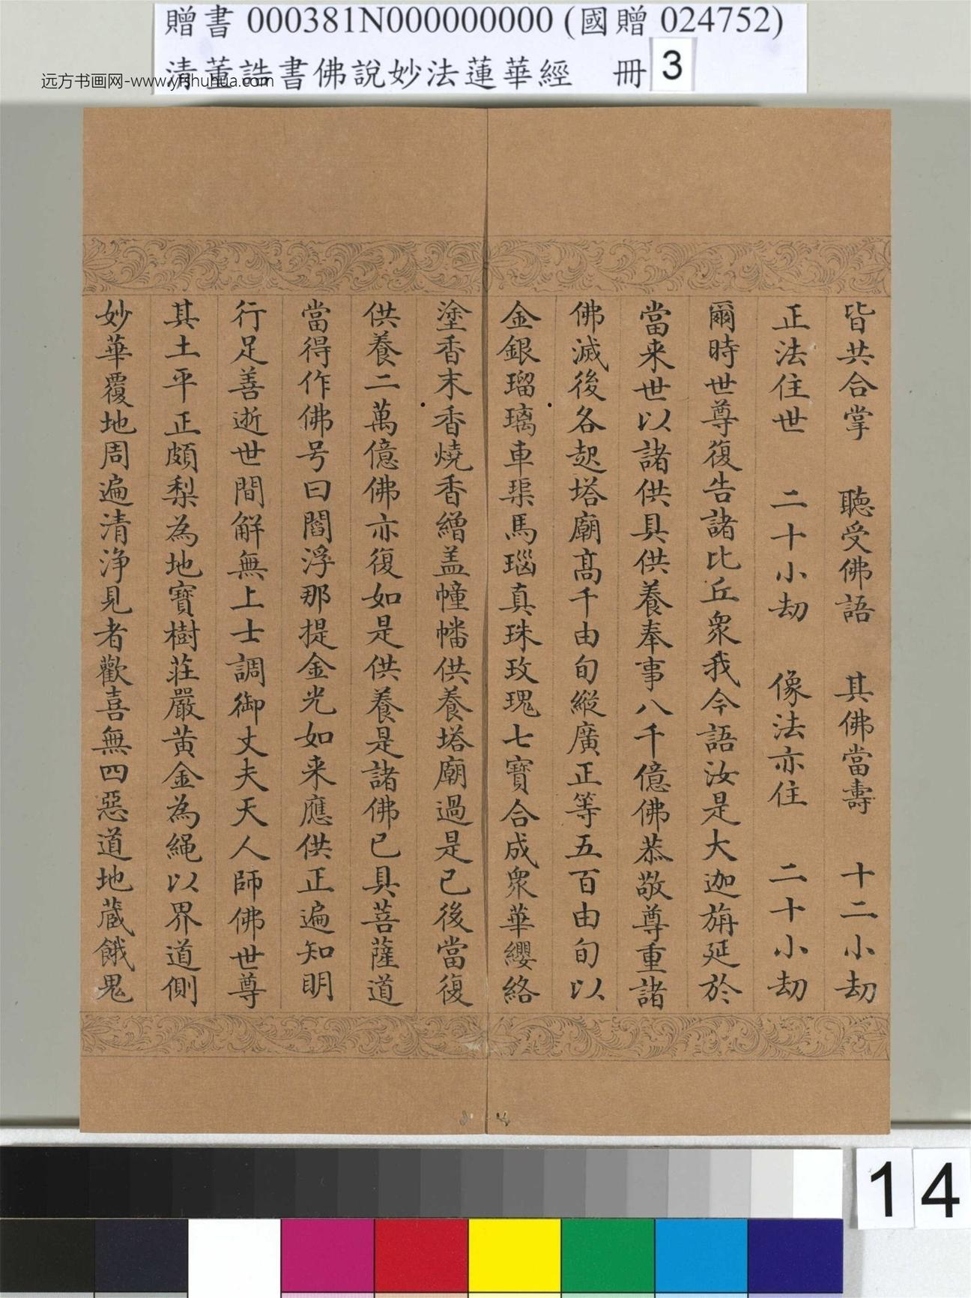 贈書 000381N000000000 (國贈 024752)
清董誥書佛說妙法蓮華經 冊 3
远方书画网-www.yfshuhua.com
皆共合掌 聽受佛語 其佛當壽 十二小劫
正法住世 二十小劫 像法亦住 二十小劫
爾時世尊復告諸比丘眾我今語汝是大迦旃延於
當来世以諸供具供養奉事八千億佛恭敬尊重諸
佛滅後各起塔廟髙千由旬縱廣正等五百由旬以
金銀瑠璃車渠馬瑙真珠玫瑰七寶合成眾華纓絡
塗香末香燒香繒盖幢幡供養塔廟過是已後當復
供養二萬億佛亦復如是供養是諸佛已具菩薩道
當得作佛号曰閻浮那提金光如来應供正遍知明
行足善逝世間解無上士調御丈夫天人師佛世尊
其土平正頗梨為地寶樹莊嚴黃金為繩以界道側
妙華覆地周遍清淨見者歡喜無四惡道地蔵餓鬼
14